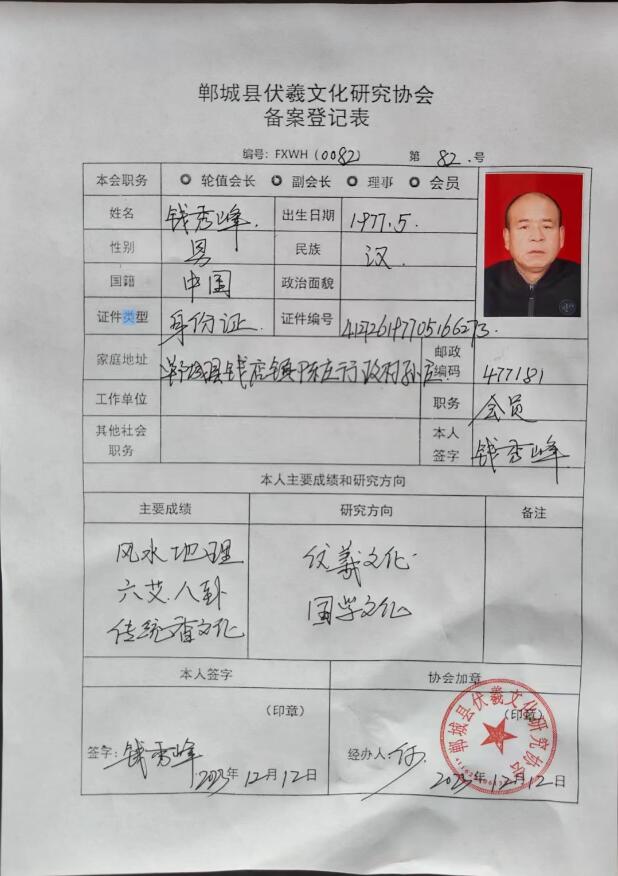 郸城县伏羲文化研究协会
备案登记表
编号：FXWH（0082） 第 82. 号
本会职务 轮值会长 副会长 理事 会员
姓名 钱秀峰. 出生日期 1977.5.
性别 男 民族 汉.
国籍 中国 政治面貌
证件类型 身份证. 证件编号 412726197705166273.
家庭地址 郸城县钱店镇陈庄行政村孙庄. 邮政编码 477181
工作单位 职务 会员
其他社会职务 本人签字 钱秀峰
本人主要成绩和研究方向
主要成绩 研究方向 备注
风水地理 伏羲文化.
六爻.八卦 国学文化
传统查文化
本人签字 协会加章
（印章） （印章）
郸城县伏羲文化研究协会
签字：钱秀峰 经办人：
2023年12月12日 2023年12月12日